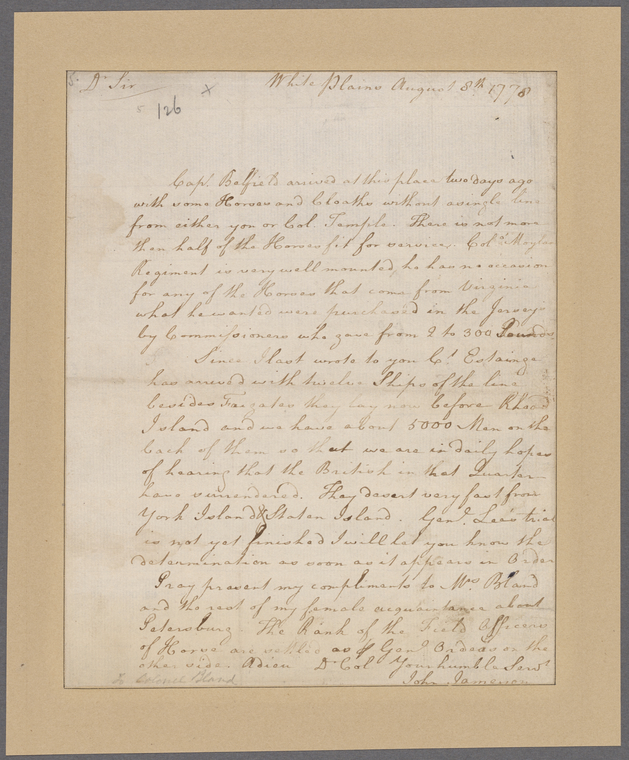 Dr Sir
White Plains August 8th 1778
126 x
Capt. Belfield arrived at this place two days ago
with some Horses and Cloaths without a single line
from either you or Col. Temple. There is not more
than half of the Horses fit for service. Colo. Moylan
Regiment is very well mounted, he has no occasion
for any of the Horses that come from Virginia
what he wanted were purchased in the Jerseys
by Commissioners who gave from 2 to 300 Pounds
Since I last wrote to you Ct. Estainge
has arrived with twelve Ships of the line
besides Frigates they lay now before Rhode
Island and we have about 5000 Men on the
back of them so that we are in daily hopes
of hearing that the British in that Quarter
have surrendered. They desert very fast from
York Island & Staten Island. Genl. Lee's trial
is not yet finished I will let you know the
determination as soon as it appears in Order
Pray present my compliments to Mrs. Bland
and the rest of my female acquaintance about
Petersburg The Rank of the Field Officers
of Horse are settled as Genl. Orders on the
other side. Adieu Dr Col Your humble Servt
John Jameson
To Colonel Bland